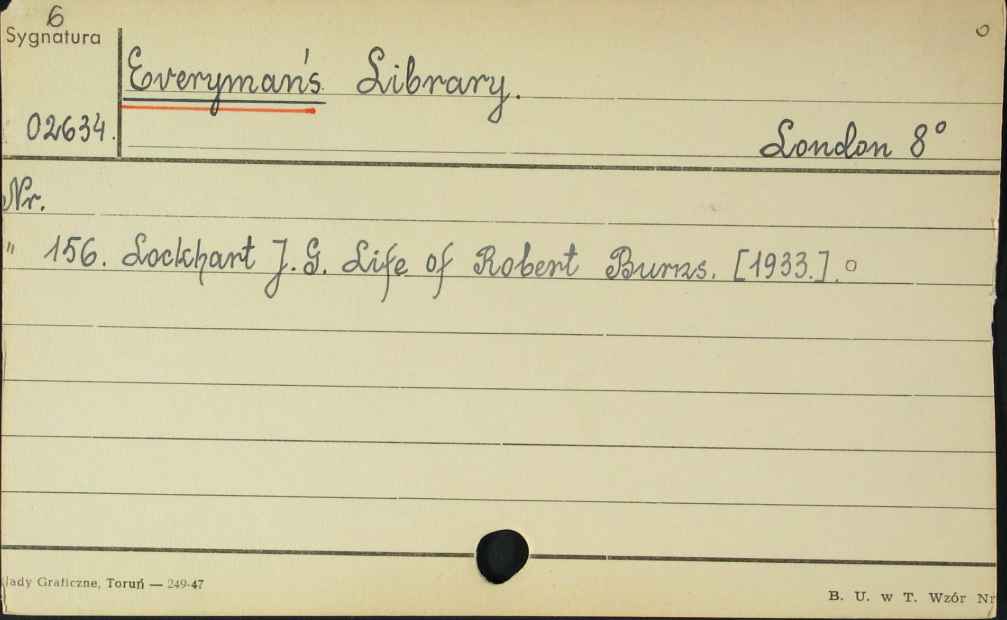 6
Sygnatura
Everyman's Library.
02634.
London 8°
Nr.
" 156. Lockhart J. G. Life of Robert Burns. [1933.].
łady Graficzne, Toruń — 249-47
B. U. w T. Wzór Nr